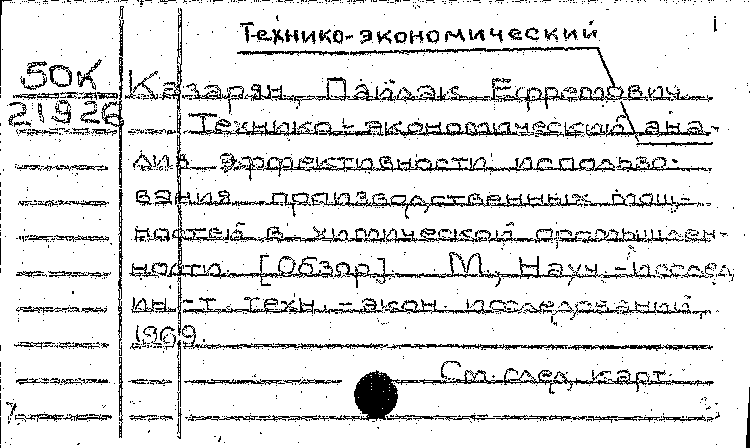 Технико-экономический
1
50К
21926
Казарян, Пайлак Ефремович.
Технико-экономический ана-
лиз эффективности использо-
вания производственных мощ-
ностей в химической промышлен-
ности. [Обзор]. М., Науч.-исслед.
ин-т техн.-экон. исследований,
1969.
См. след. карт.